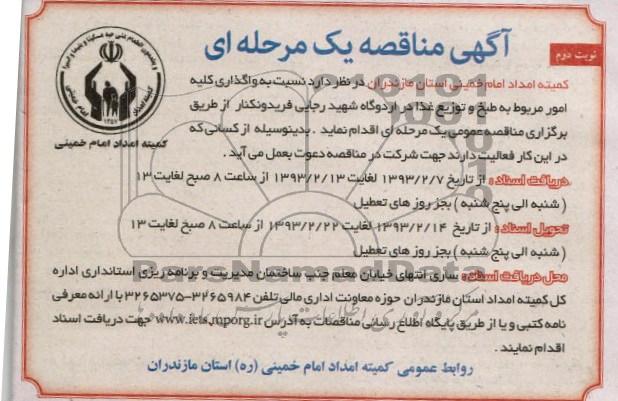 آگهی مناقصه یک مرحله ای
نوبت دوم
کمیته امداد امام خمینی استان مازندران در نظر دارد نسبت به واگذاری کلیه
امور مربوط به طبخ و توزیع غذا در اردوگاه شهید رجایی فریدونکنار از طریق
برگزاری مناقصه عمومی یک مرحله ای اقدام نماید . بدینوسیله از کسانی که
در این کار فعالیت دارند جهت شرکت در مناقصه دعوت بعمل می آید .
دریافت اسناد : از تاریخ ۱۳۹۳/۲/۷ لغایت ۱۳۹۳/۲/۱۳ از ساعت ۸ صبح لغایت ۱۳
( شنبه الی پنج شنبه ) بجز روز های تعطیل
تحویل اسناد : از تاریخ ۱۳۹۳/۲/۱۴ لغایت ۱۳۹۳/۲/۲۲ از ساعت ۸ صبح لغایت ۱۳
( شنبه الی پنج شنبه ) بجز روز های تعطیل
محل دریافت اسناد : ساری انتهای خیابان معلم جنب ساختمان مدیریت و برنامه ریزی استانداری اداره
کل کمیته امداد استان مازندران حوزه معاونت اداری مالی تلفن ۳۲۶۵۹۸۴-۳۲۶۵۳۷۵ با ارائه معرفی
نامه کتبی و یا از طریق پایگاه اطلاع رسانی مناقصات به آدرس www.iets.mporg.ir جهت دریافت اسناد
اقدام نمایند .
روابط عمومی کمیته امداد امام خمینی (ره) استان مازندران
کمیته امداد امام خمینی
ParsNamadData